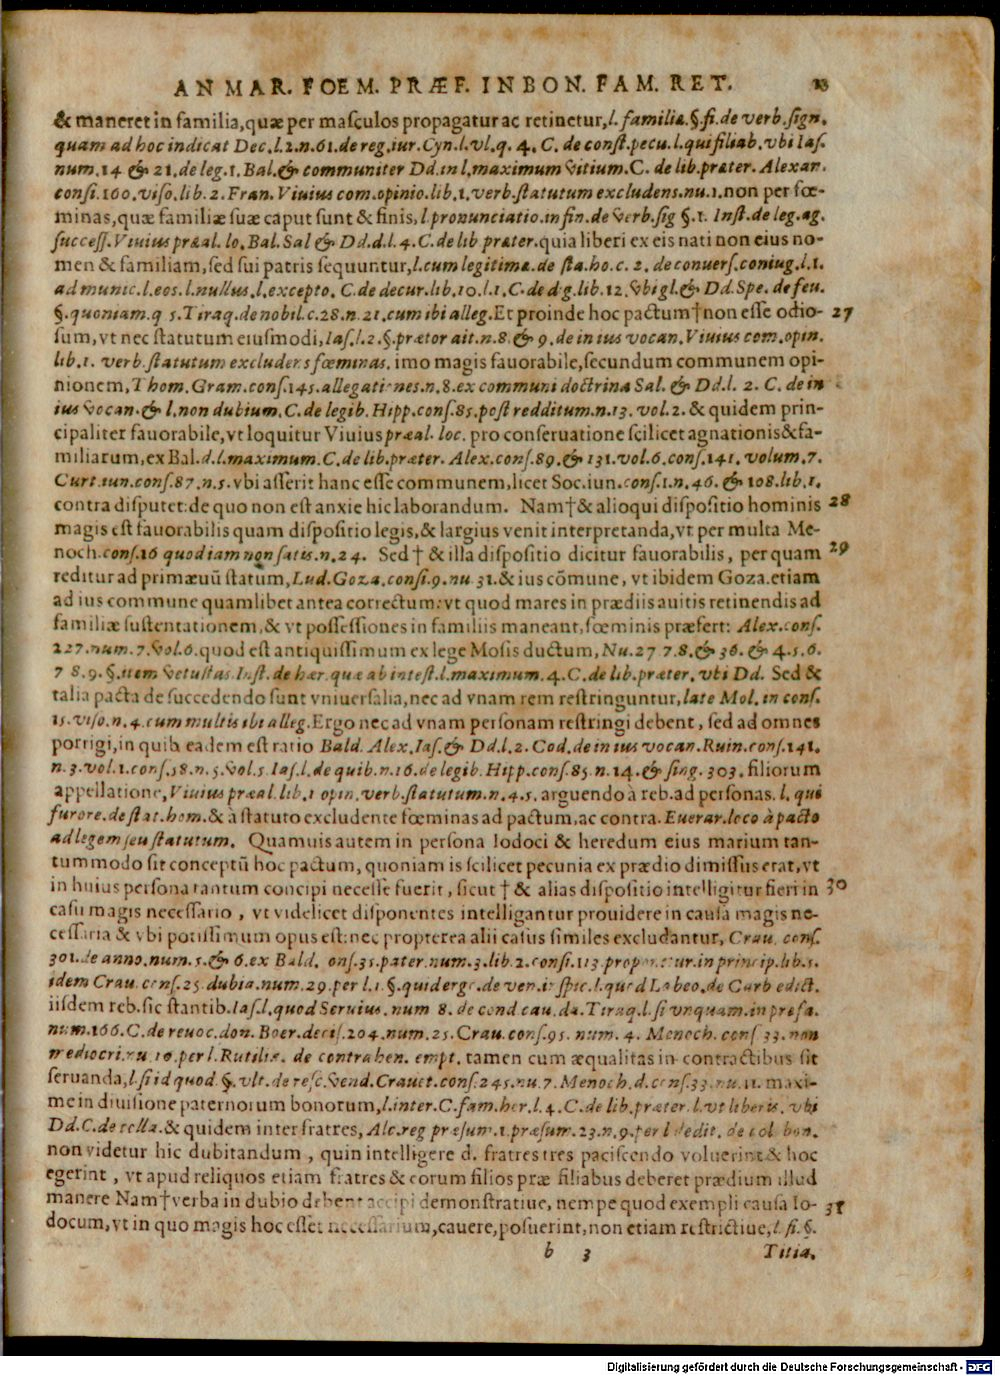 AN MAR. FOEM. PRÆF. IN BON. FAM. RET. 13
& maneret in familia, quæ per maſculos propagatur ac retinetur, l. familiæ. §. fi. de verb. ſign.
quam ad hoc indicat Dec. l. 2. n. 61. de reg. iur. Cyn. l. vl. q. 4. C. de conſt. pecu. l. qui filiab. vbi Iaſ.
num. 14 & 21. de leg. 1. Bal. & communiter Dd. in l. maximum vitium. C. de lib. præter. Alexan.
conſi. 160. viſo. lib. 2. Fran. Viuius com. opinio. lib. 1. verb. ſtatutum excludens. nu. 1. non per fœ-
minas, quæ familiæ ſuæ caput ſunt & finis, l. pronunciatio. in fin. de verb. ſig §. 1. Inſt. de leg. ag.
ſucceſſ. Viuius præal. lo. Bal. Sal & Dd. d. l. 4. C. de lib præter. quia liberi ex eis nati non eius no-
men & familiam, ſed ſui patris ſequuntur, l. cum legitimæ. de ſta. ho. c. 2. de conuerſ. coniug. l. 1.
ad munic. l. eos. l. nullus. l. excepto. C. de decur. lib. 10. l. 1. C. de dig. lib. 12. vbi gl. & Dd. Spe. de feu.
§. quoniam. q 5. Tiraq. de nobil. c. 28. n. 21. cum ibi alleg. Et proinde hoc pactum † non eſſe odio- 27
ſum, vt nec ſtatutum eiuſmodi, Iaſ. l. 2. §. prætor ait. n. 8. & 9. de in ius vocan. Viuius com. opin.
lib. 1. verb. ſtatutum excludens fœminas. imo magis fauorabile, ſecundum communem opi-
nionem, Thom. Gram. conſ. 145. allegationes. n. 8. ex communi doctrina Sal. & Dd. l. 2. C. de in
ius vocan. & l. non dubium. C. de legib. Hipp. conſ. 85. poſt redditum. n. 13. vol. 2. & quidem prin-
cipaliter fauorabile, vt loquitur Viuius præal. loc. pro conſeruatione ſcilicet agnationis & fa-
miliarum, ex Bal. d. l. maximum. C. de lib. præter. Alex. conſ. 89. & 131. vol. 6. conſ. 141. volum. 7.
Curt. iun. conſ. 87. n. 5. vbi aſſerit hanc eſſe communem, licet Soc. iun. conſ. 1. n. 46. & 108. lib. 1.
contra diſputet: de quo non eſt anxie hic laborandum. Nam † & alioqui diſpoſitio hominis 28
magis eſt fauorabilis quam diſpoſitio legis, & largius venit interpretanda, vt per multa Me-
noch. conſ. 16 quoniam non ſatis. n. 24. Sed † & illa diſpoſitio dicitur fauorabilis, per quam 29
reditur ad primæuū ſtatum, Lud. Goza. conſi. 9. nu 31. & ius cōmune, vt ibidem Goza. etiam
ad ius commune quamlibet antea correctum: vt quod mares in prædiis auitis retinendis ad
familiæ ſuſtentationem, & vt poſſeſſiones in familiis maneant, fœminis præfert: Alex. conſ.
227. num. 7. vol. 6. quod eſt antiquiſſimum ex lege Moſis ductum, Nu. 27 7. 8. & 36. & 4. 5. 6.
7 8. 9. §. item vetuſtas. Inſt. de hær. quæ ab inteſt. l. maximum. 4. C. de lib. præter. vbi Dd. Sed &
talia pacta de ſuccedendo ſunt vniuerſalia, nec ad vnam rem reſtringuntur, late Mol. in conſ.
15. viſo. n. 4. cum multis ibi alleg. Ergo nec ad vnam perſonam reſtringi debent, ſed ad omnes
porrigi, in quib. eadem eſt ratio Bald. Alex. Iaſ. & Dd. l. 2. Cod. de in ius vocan. Ruin. conſ. 141.
n. 3. vol. 1. conſ. 58. n. 5. vol. 5. Iaſ. l. de quib. n. 16. de legib. Hipp. conſ. 85. n. 14. & ſing. 303. filiorum
appellatione, Viuius præal. lib. 1 opin. verb. ſtatutum. n. 4. 5. arguendo à reb. ad perſonas. l. qui
furore. de ſtat. hom. & à ſtatuto excludente fœminas ad pactum, ac contra. Euerar. loco à pacto
ad legem ſeu ſtatutum. Quamuis autem in perſona Iodoci & heredum eius marium tan-
tummodo ſit conceptū hoc pactum, quoniam is ſcilicet pecunia ex prædio dimiſſus erat, vt
in huius perſona tantum concipi neceſſe fuerit, ſicut † & alias diſpoſitio intelligitur fieri in 30
caſu magis neceſſario, vt videlicet diſponentes intelligantur prouidere in cauſa magis ne-
ceſſaria & vbi potiſſimum opus eſt: nec propterea alii caſus ſimiles excludantur, Crau. conſ.
301. de anno. num. 5. & 6. ex Bald. onſ. 35. pater. num. 3. lib. 2. conſi. 113 in princip. lib. 5.
idem Crau. conſ. 25. dubia. num. 29. per l. 1. §. quid ergo. de ven. l. quod Labeo. de Carb edict.
iiſdem reb. ſic ſtantib. Iaſ. l. quod Seruius. num 8. de cond cau. da. Tiraq. l. ſi vnquam. in præfa.
num. 166. C. de reuoc. don. Boer. deciſ. 204. num. 25. Crau. conſ. 95. num. 4. Menoch. conſ 33. non
mediocri. nu. 10. per l. Rutiliæ. de contrahen. empt. tamen cum æqualitas in contractibus ſit
ſeruanda, l. ſi id quod §. vlt. de reſc. vend. Crauet. conſ. 245. nu 7. Menoch. d. conſ. 33. nu. 11. maxi-
me in diuiſione paternorum bonorum, l. inter. C. fam. her. l. 4. C. de lib. præter. l. vt liberis. vbi
Dd. C. de colla. & quidem inter fratres, Alc. reg præſum. 1. præſum. 23. n. 9. per l dedit. de col bon.
non videtur hic dubitandum, quin intelligere d. fratres tres paciſcendo voluerint & hoc
egerint, vt apud reliquos etiam fratres & eorum filios præ filiabus deberet prædium illud
manere Nam † verba in dubio debent accipi demonſtratiue, nempe quod exempli cauſa Io- 31
docum, vt in quo magis hoc eſſet neceſſarium, cauere, poſuerint, non etiam reſtrictiue, l. ſi. §.
b 3 Titia.
Digitalisierung gefördert durch die Deutsche Forschungsgemeinschaft - DFG